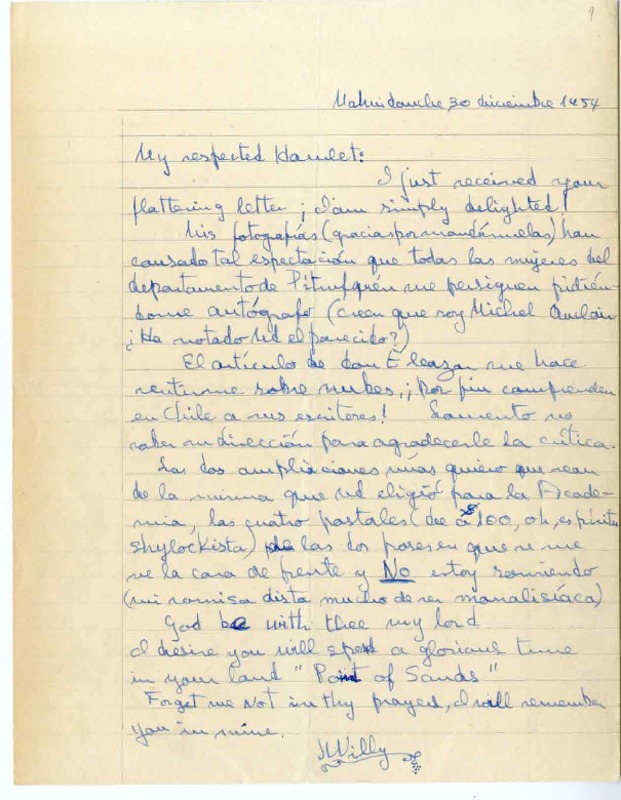 1
Mahuidanche 30 diciembre 1954
My respected Hamlet:
I just received your
flattering letter ¡I am simply delighted!
Mis fotografías (gracias por mandármelas) han
causado tal espectación que todas las mujeres del
departamento de Pitrufquén me persiguen pidién-
dome autógrafo (creen que soy Michel Auclair
¿Ha notado Ud el parecido?)
El artículo de don Eleazar me hace
sentirme sobre nubes, ¡Por fin comprenden
en Chile a sus escritores! Lamento no
saber su dirección para agradecerle la crítica.
Las dos ampliaciones mías quiero que sean
de la misma que Ud eligió para la Acade-
mia, las cuatro postales (de a $100, oh, espíritu
shylockista) de las dos poses en que se me
ve la cara de frente y No estoy sonriendo
(mi sonrisa dista mucho de ser monalisíaca)
God be with thee my lord
I desire you will spend a glorious time
in your land "Point of Sands"
Forget me not in thy prayers, I will remember
you in mine.
Willy